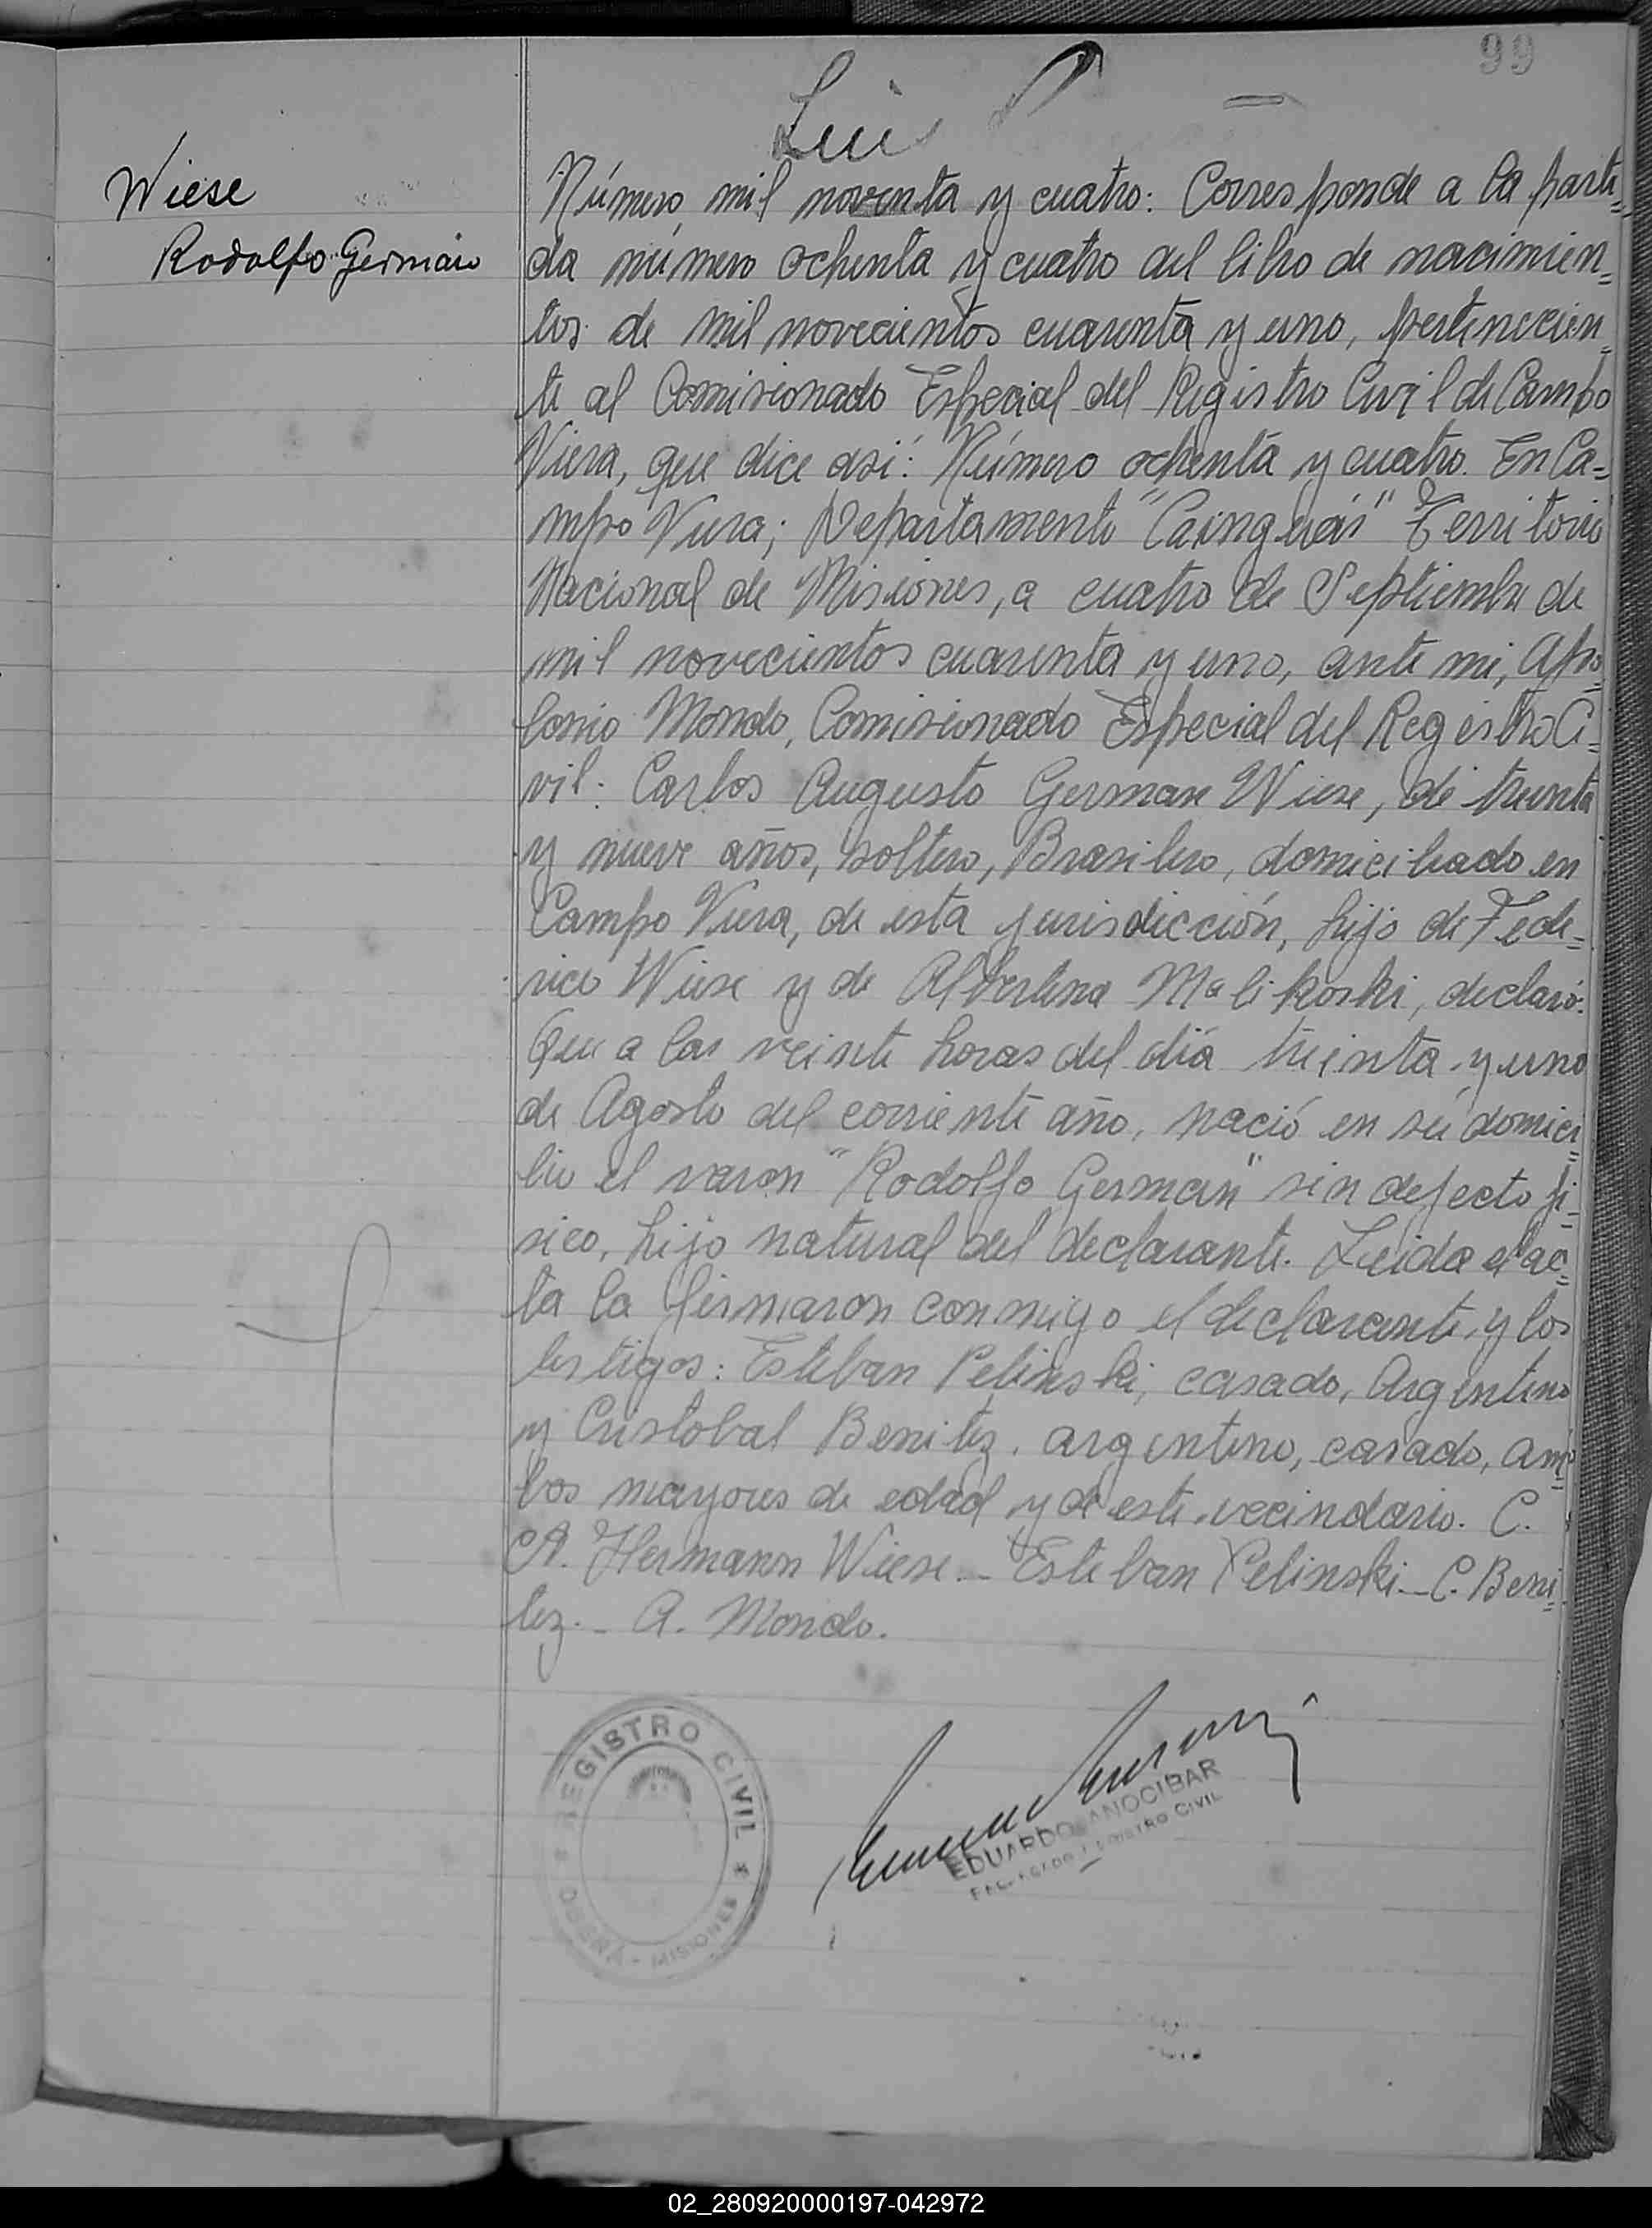 99
Luis
Wiese
Rodolfo Germán
Número mil noventa y cuatro: Corresponde a la parti=
da número ochenta y cuatro del libro de nacimien=
tos de mil novecientos cuarenta y uno, pertenecien=
te al Comisionado Especial del Registro Civil de Campo
Viera, que dice así: Número ochenta y cuatro. En Ca=
mpo Viera; Departamento "Cainguás" Territorio
Nacional de Misiones, a cuatro de Septiembre de
mil novecientos cuarenta y uno, ante mi,
Mondo, Comisionado Especial del Registro Ci=
vil: Carlos Augusto German Wiese, de treinta
y nueve años, soltero, Brasilero, domiciliado en
Campo Viera, de esta jurisdicción, hijo de Fede=
rico Wiese y de Albertina Malikoski, declaró:
Que a las veinte horas del día treinta y uno
de Agosto del corriente año, nació en sú domici=
lio el varon "Rodolfo German" sin defecto fi=
sico, hijo natural del declarante. Leida el ac=
ta la firmaron conmigo el declarante y los
testigos: Esteban Pelinski, casado, Argentino
y Cristobal Benitez, argentino, casado, am=
bos mayores de edad y de este vecindario. C.
A. Hermann Wiese._ Esteban Pelinski._ C. Beni=
tez._ A. Mondo.
REGISTRO CIVIL
OBERÁ - MISIONES
EDUARDO ANOCIBAR
ENCARGADO REGISTRO CIVIL
02_280920000197-042972